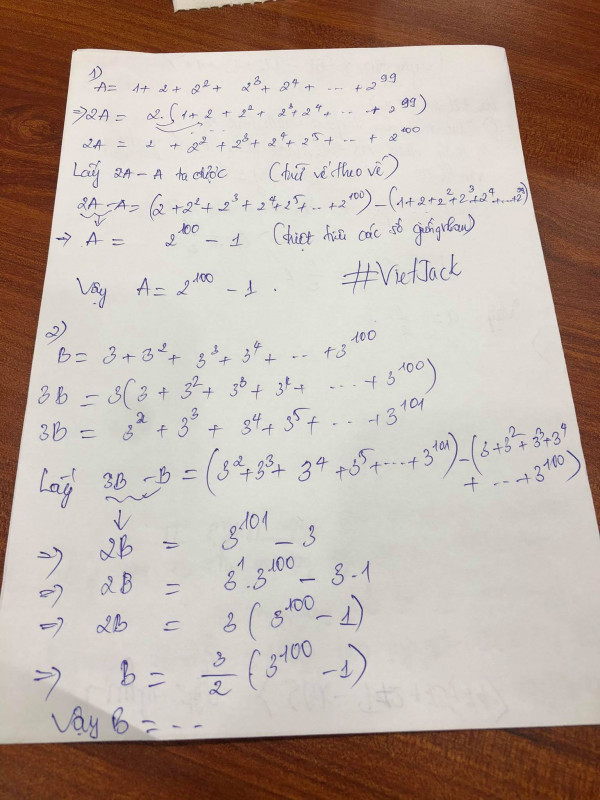 1)
A = 1 + 2 + 2² + 2³ + 2⁴ + ... + 2⁹⁹
=> 2A = 2.(1 + 2 + 2² + 2³ + 2⁴ + ... + 2⁹⁹)
2A = 2 + 2² + 2³ + 2⁴ + 2⁵ + ... + 2¹⁰⁰
Lấy 2A - A ta được (trừ vế theo vế)
2A - A = (2 + 2² + 2³ + 2⁴ + 2⁵ + ... + 2¹⁰⁰) - (1 + 2 + 2² + 2³ + 2⁴ + ... + 2⁹⁹)
=> A = 2¹⁰⁰ - 1 (triệt tiêu các số giống nhau)
Vậy A = 2¹⁰⁰ - 1 .
#VietJack
2)
B = 3 + 3² + 3³ + 3⁴ + ... + 3¹⁰⁰
3B = 3(3 + 3² + 3³ + 3⁴ + ... + 3¹⁰⁰)
3B = 3² + 3³ + 3⁴ + 3⁵ + ... + 3¹⁰¹
Lấy 3B - B = (3² + 3³ + 3⁴ + 3⁵ + ... + 3¹⁰¹) - (3 + 3² + 3³ + 3⁴
+ ... + 3¹⁰⁰)
=> 2B = 3¹⁰¹ - 3
=> 2B = 3¹.3¹⁰⁰ - 3.1
=> 2B = 3(3¹⁰⁰ - 1)
=> B = 3/2 (3¹⁰⁰ - 1)
Vậy B = ...